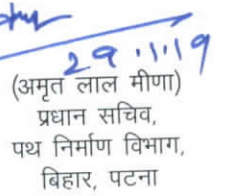 29.11.19
(अमृत लाल मीणा)
प्रधान सचिव,
पथ निर्माण विभाग,
बिहार, पटना